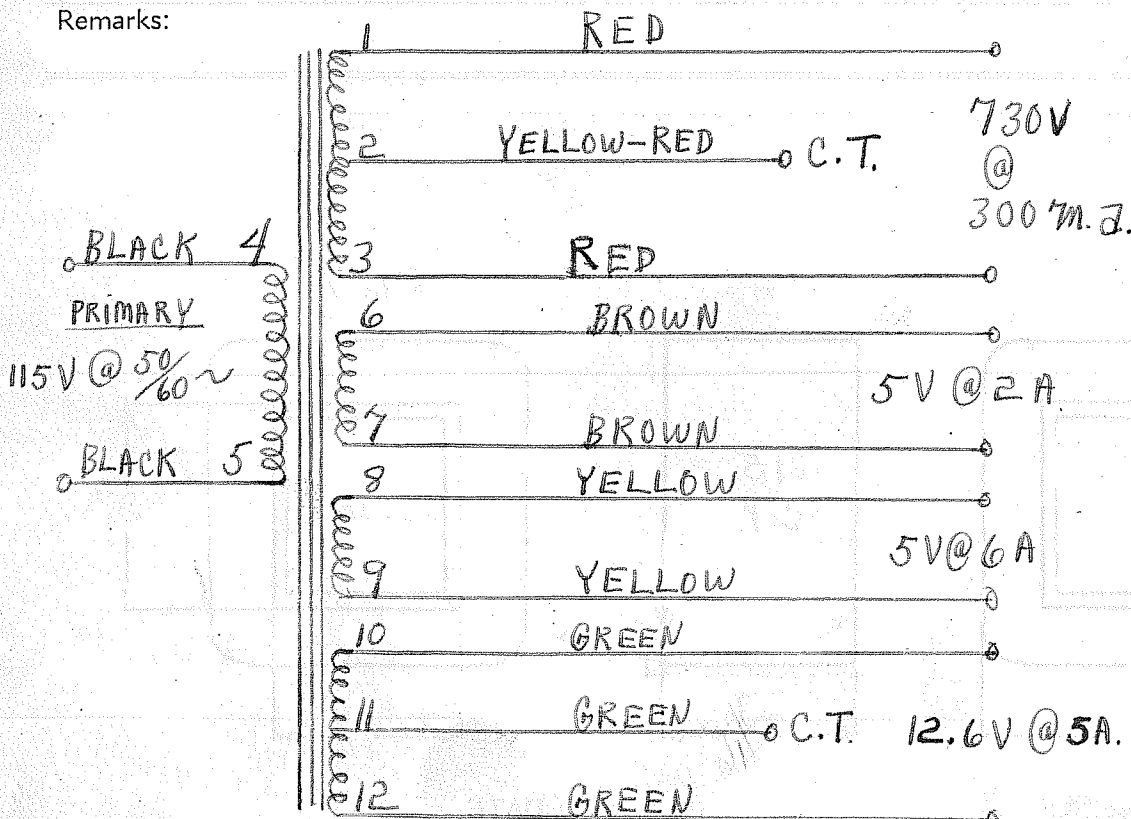 Remarks:
1 RED
2 YELLOW-RED C.T.
730V
@
300 m.a.
3 RED
BLACK 4
PRIMARY
115V @ 50/60 ~
BLACK 5
6 BROWN
5V @ 2A
7 BROWN
8 YELLOW
5V @ 6A
9 YELLOW
10 GREEN
11 GREEN C.T. 12.6V @ 5A.
12 GREEN